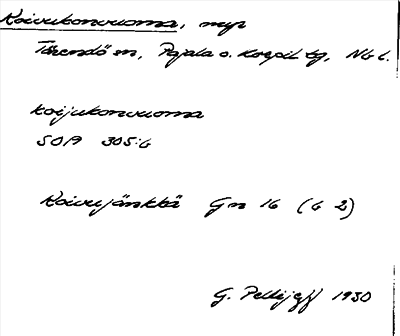 Koivukonvuoma, myr
Tärendö sn, Pajala o. Korpil. tg, Nb l.
koijukonvuoma
SOA 305:6
Koivujänkkä Gn 16 (6 2)
G. Pellijeff 1930